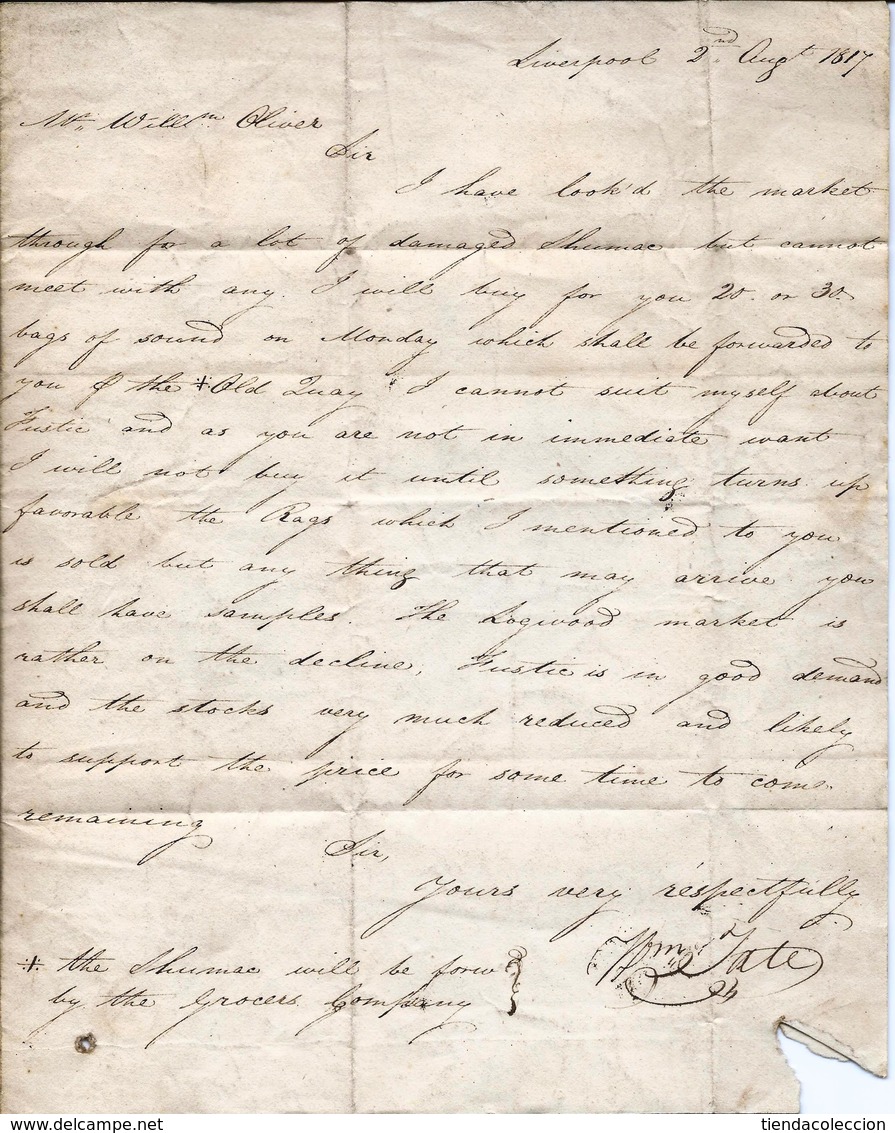 Liverpool 2nd Augt 1817
Mr. Willm Oliver
Sir
I have look'd the market
through for a lot of damaged Shumac but cannot
meet with any. I will buy for you 20. or 30.
bags of sound on Monday which shall be forwarded to
you ⅌ the ⁜ Old Quay I cannot suit myself about
Fustic and as you are not in immediate want
I will not buy it until something turns up
favorable the Rags which I mentioned to you
is sold but any thing that may arrive you
shall have samples. The Logwood market is
rather on the decline, Fustic is in good demand
and the stocks very much reduced and likely
to support the price for some time to come
remaining
Sir,
Yours very respectfully
Wm Tate
⁜ the Shumac will be forw
by the Grocers Company
tiendacoleccion